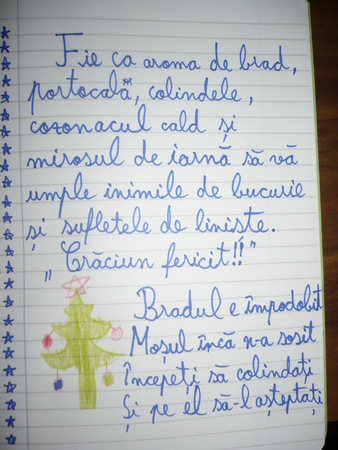 Fie ca aroma de brad,
portocală, colindele,
cozonacul cald și
mirosul de iarnă să vă
umple inimile de bucurie
și sufletele de liniste.
„Crăciun fericit!!”
Bradul e împodobit
Moșul încă n-a sosit
Începeți să colindați
Și pe el să-l așteptați